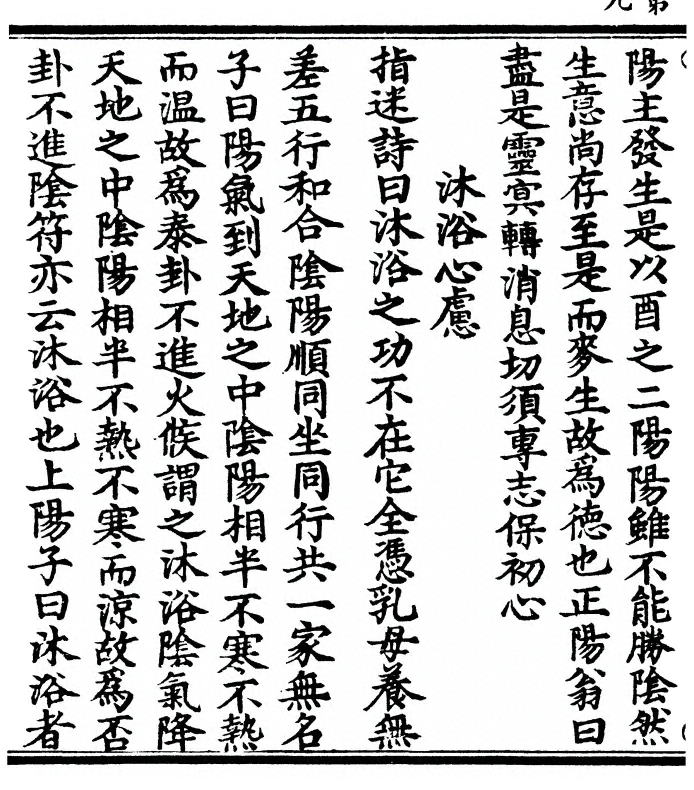 陽主發生是以酉之二陽陽雖不能勝陰然
生意尚存至是而麥生故爲德也正陽翁曰
盡是靈冥轉消息切須專志保初心
沐浴心慮
指迷詩曰沐浴之功不在它全憑乳母養無
差五行和合陰陽順同坐同行共一家無名
子曰陽氣到天地之中陰陽相半不寒不熱
而温故爲泰卦不進火候謂之沐浴陰氣降
天地之中陰陽相半不熱不寒而涼故爲否
卦不進陰符亦云沐浴也上陽子曰沐浴者